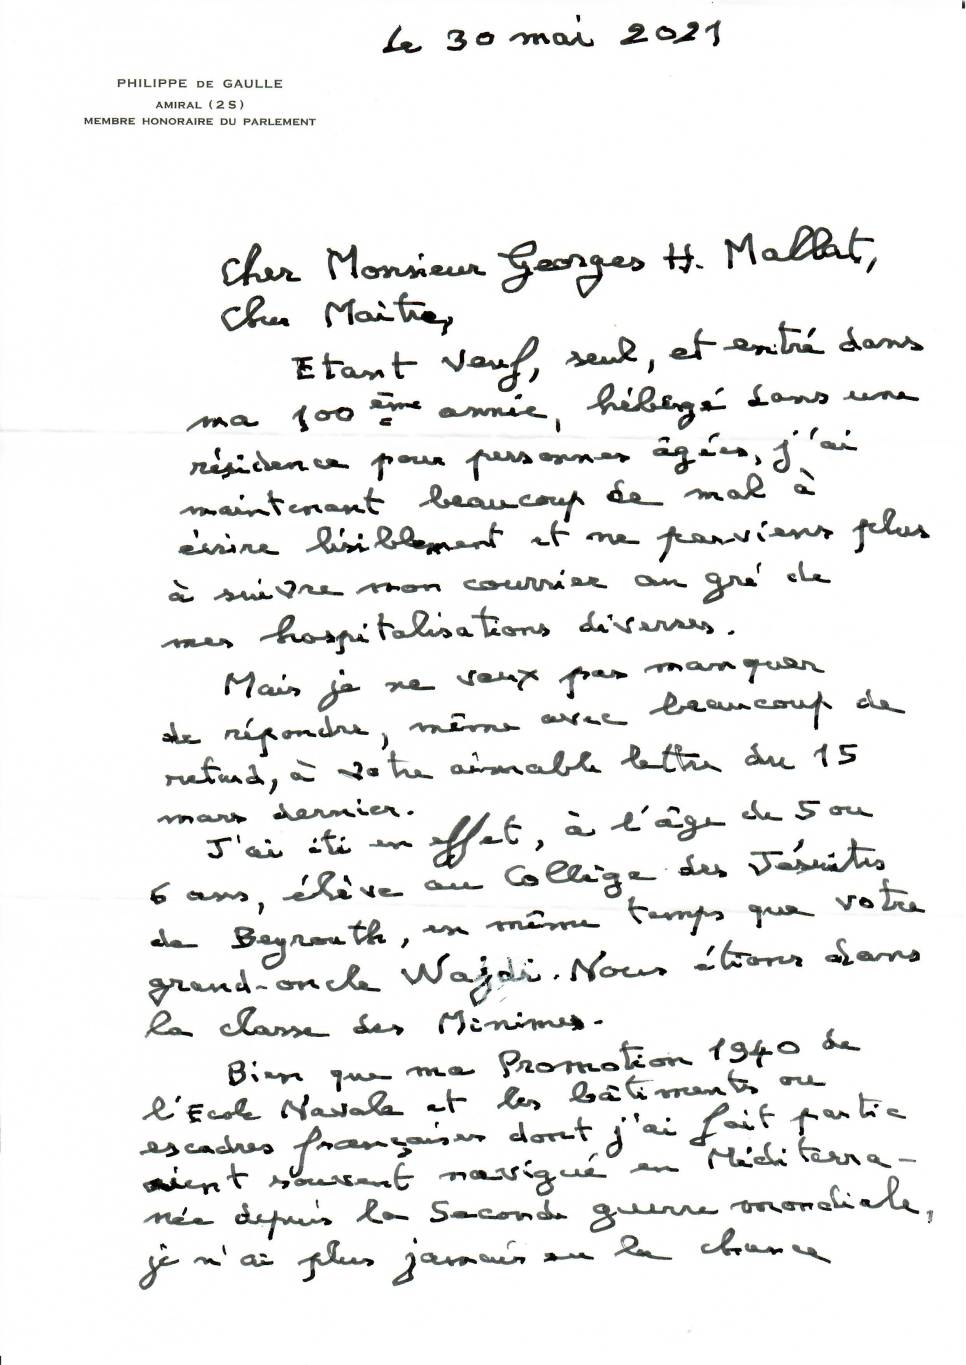 Le 30 mai 2021
PHILIPPE DE GAULLE
AMIRAL (2S)
MEMBRE HONORAIRE DU PARLEMENT
Cher Monsieur Georges H. Mallat,
Cher Maître,
Etant veuf, seul, et entré dans
ma 100ème année, hébergé dans une
résidence pour personnes âgées, j'ai
maintenant beaucoup de mal à
écrire lisiblement et ne parviens plus
à suivre mon courrier au gré de
mes hospitalisations diverses.
Mais je ne veux pas manquer
de répondre, même avec beaucoup de
retard, à votre aimable lettre du 15
mars dernier.
J'ai été en effet, à l'âge de 5 ou
6 ans, élève au Collège des Jésuites
de Beyrouth, en même temps que votre
grand-oncle Wajdi. Nous étions dans
la classe des Minimes.
Bien que ma Promotion 1940 de
l'Ecole Navale et les bâtiments ou
escadres françaises dont j'ai fait partie
aient souvent navigué en Méditerra-
née depuis la Seconde guerre mondiale,
je n'ai plus jamais eu la chance